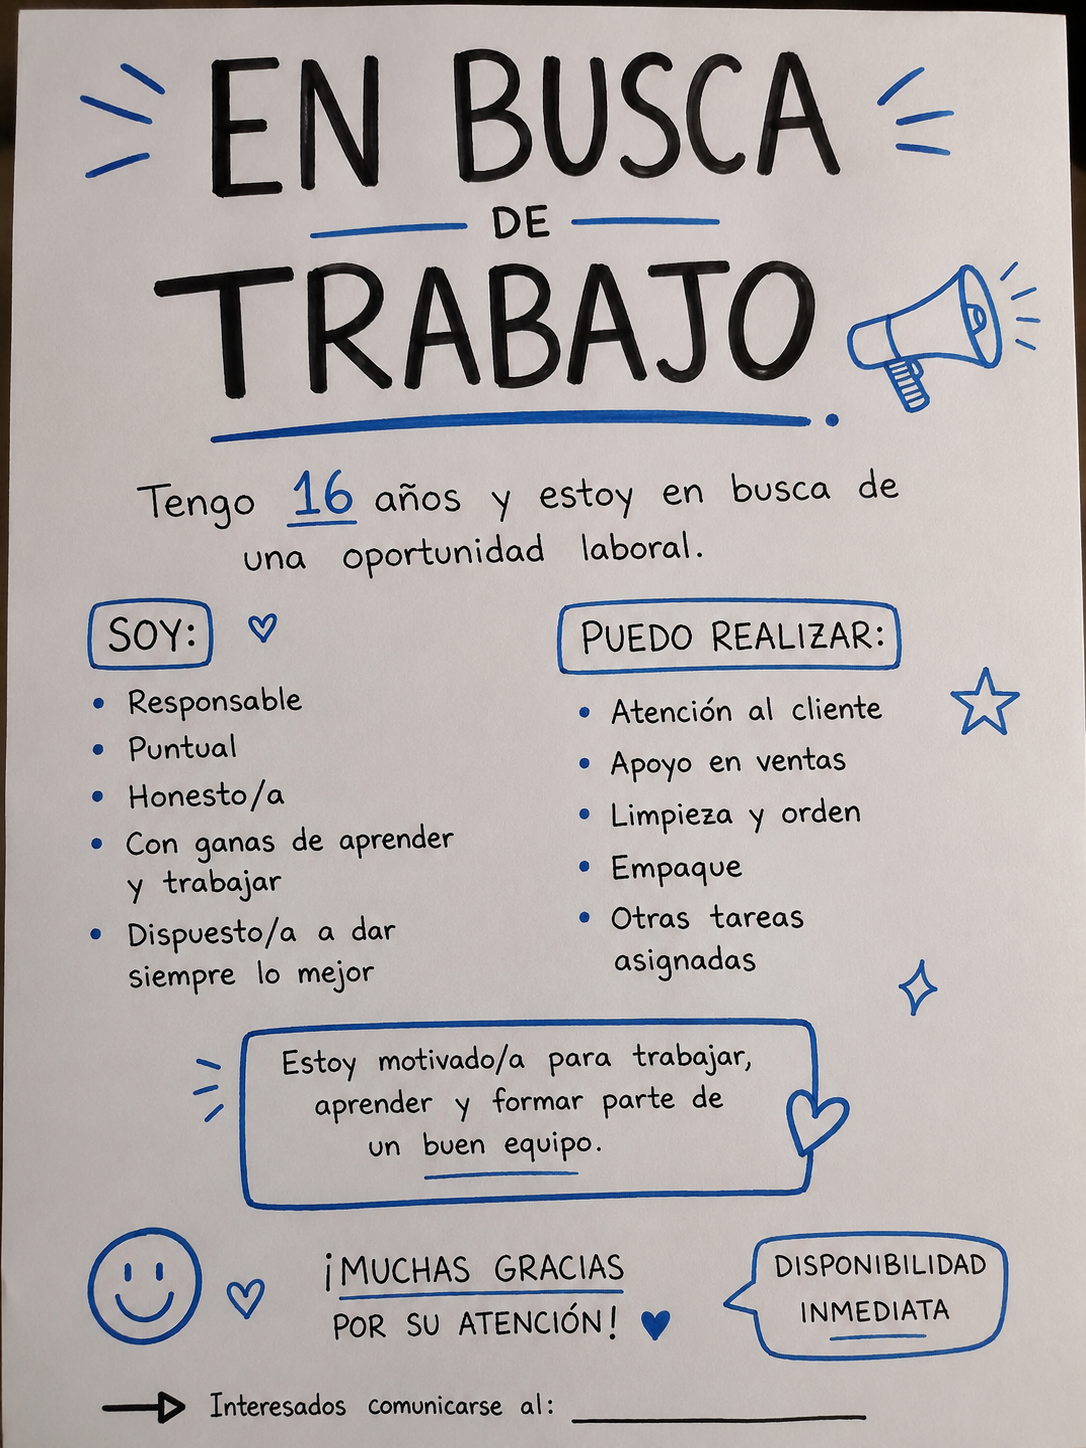 EN BUSCA
DE
TRABAJO
Tengo 16 años y estoy en busca de
una oportunidad laboral.
SOY:
• Responsable
• Puntual
• Honesto/a
• Con ganas de aprender
y trabajar
• Dispuesto/a a dar
siempre lo mejor
PUEDO REALIZAR:
• Atención al cliente
• Apoyo en ventas
• Limpieza y orden
• Empaque
• Otras tareas
asignadas
Estoy motivado/a para trabajar,
aprender y formar parte de
un buen equipo.
¡MUCHAS GRACIAS
POR SU ATENCIÓN!
DISPONIBILIDAD
INMEDIATA
Interesados comunicarse al: